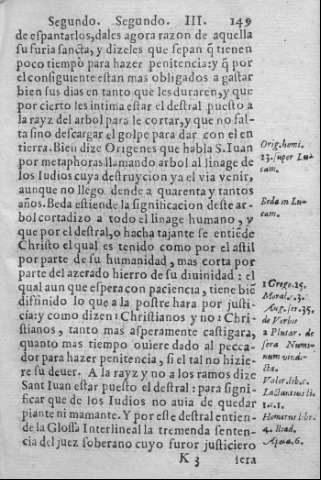 Segundo. Segundo. III. 149
de espantarlos, dales agora razon de aquella
su furia sancta, y dizeles que sepan q̃ tienen
poco tiempo para hazer penitencia: y q̃ por
el consiguiente estan mas obligados a gastar
bien sus dias en tanto que les duraren, y que
por cierto les intima estar el destral puesto a
la rayz del arbol para le cortar, y que no fal-
ta sino descargar el golpe para dar con el en
tierra. Bien dize Origenes que habla S. Iuan
por metaphoras llamando arbol al linage de
los Iudios cuya destruycion ya el via venir,
aunque no llego dende a quarenta y tantos
años. Beda estiende la significacion deste ar-
bol cortadizo a todo el linage humano, y
que por el destral, o hacha tajante se entiẽde
Christo el qual es tenido como por el astil
por parte de su humanidad, mas corta por
parte del azerado hierro de su diuinidad: el
qual aun que espera con paciencia, tiene biẽ
difinido lo que a la postre hara por justi-
cia: y como dizen: Christianos y no: Chri-
stianos, tanto mas asperamente castigara,
quanto mas tiempo quiere dado al pecca-
dor para hazer penitencia, si el tal no hizie-
re su deuer. A la rayz y no a los ramos dize
Sant Iuan estar puesto el destral: para signi-
ficar que de los Iudios no auia de quedar
piante ni mamante. Y por este destral entien-
de la Glossa Interlineal la tremenda senten-
cia del juez soberano cuyo furor justiciero
K 3 sera
Orig. homi.
23. super Lu-
cam.
Beda in Lu-
cam.
1 Grego. 25.
Moral. c. 3.
Aug. ser. 35.
de Verbis
2 Plutar. de
sera Numi-
num vindi-
cta.
Valer. lib. 1. c.
Lactantius li.
Homerus libr.
4. Iliad.